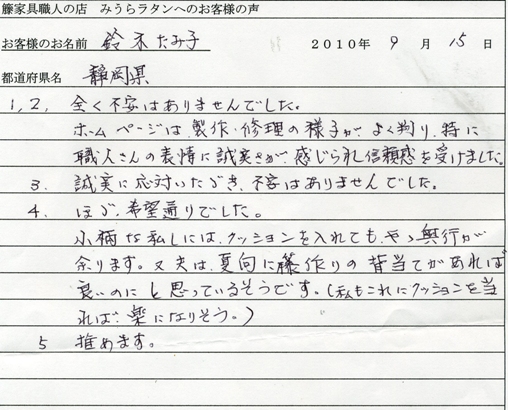 籐家具職人の店 みうらラタンへのお客様の声
お客様のお名前 鈴木たみ子 2010年 9 月 15 日
都道府県名 静岡県
1,2, 全く不安はありませんでした。
ホームページは、製作・修理の様子が、よく判り、特に
職人さんの表情に誠実さが、感じられ信頼感を受けました。
3. 誠実に応対いただき、不安はありませんでした。
4. ほぼ、希望通りでした。
小柄な私しには、クッションを入れても、やゝ奥行が
余ります。又夫は、夏向に籐作りの背当てがあれば
良いのに と思っているそうです。(私もこれにクッションを当
れば、楽になりそう。)
5 推めます。